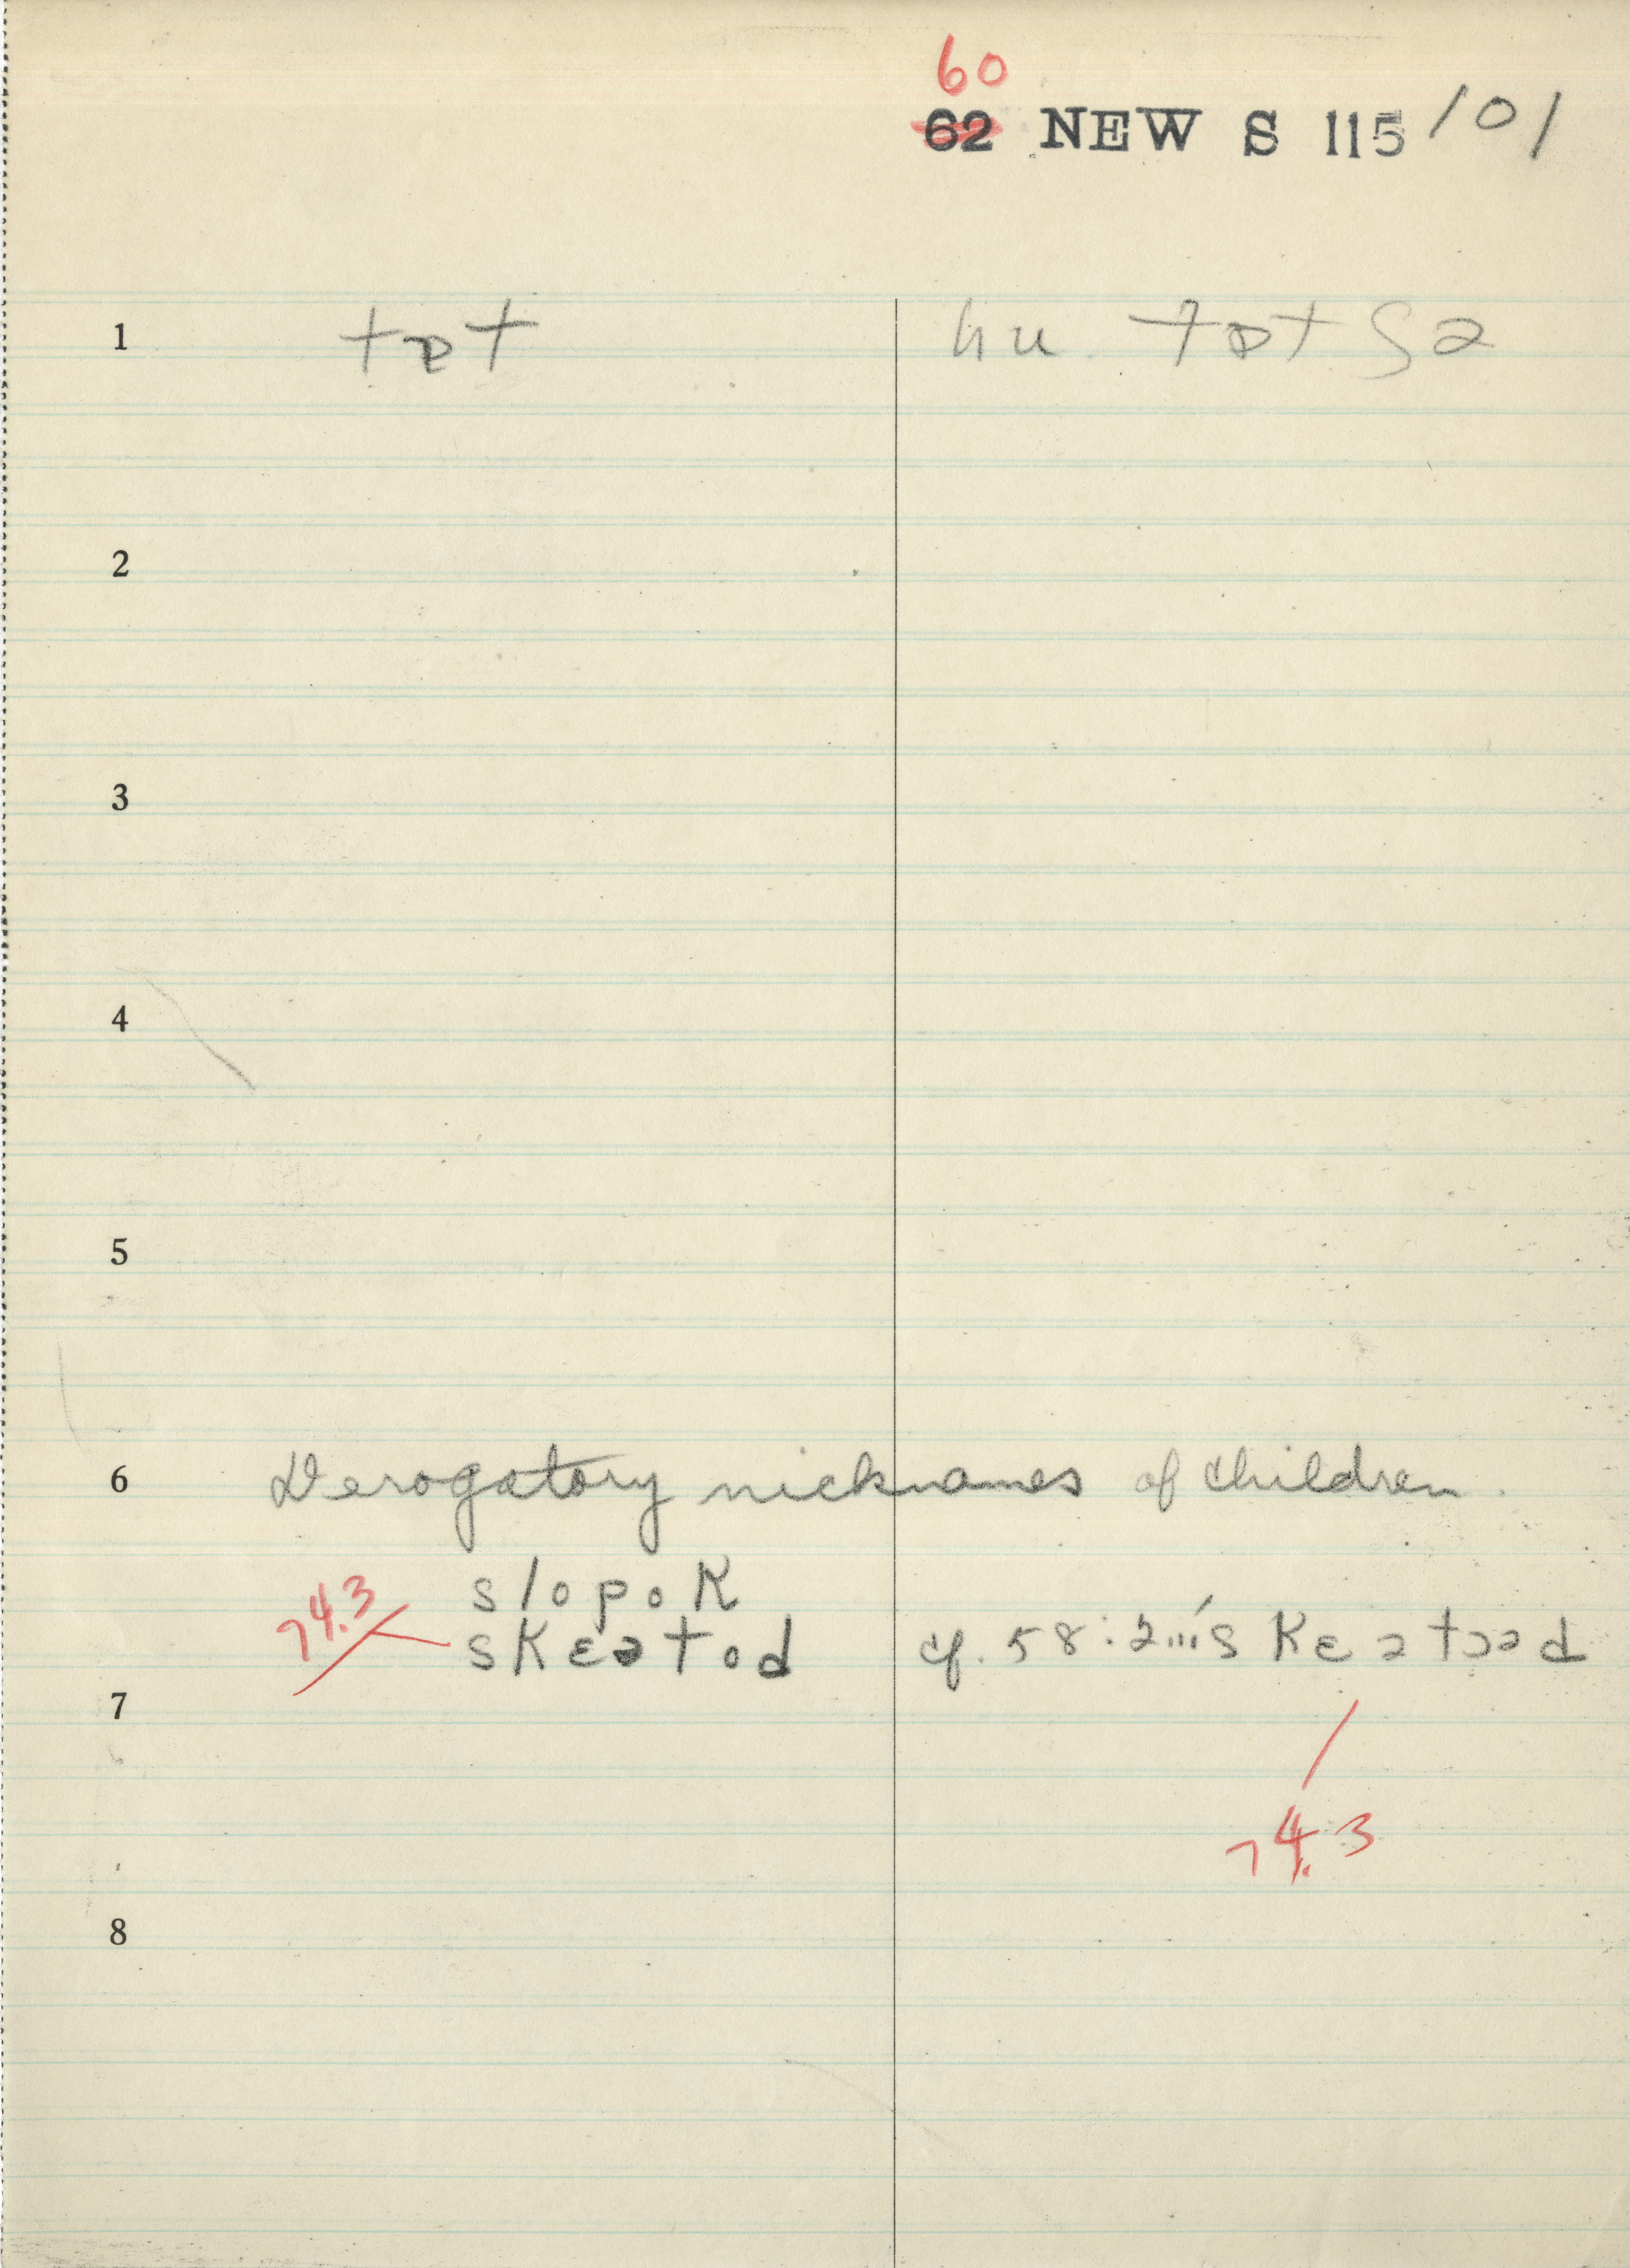 60
62 NEW S 115/101
1 tɒt hu tɒtʃə
2
3
4
5
6 Derogatory nicknames of children.
slopok
74.3 skɛətod cf. 58:2
7
74.3
8